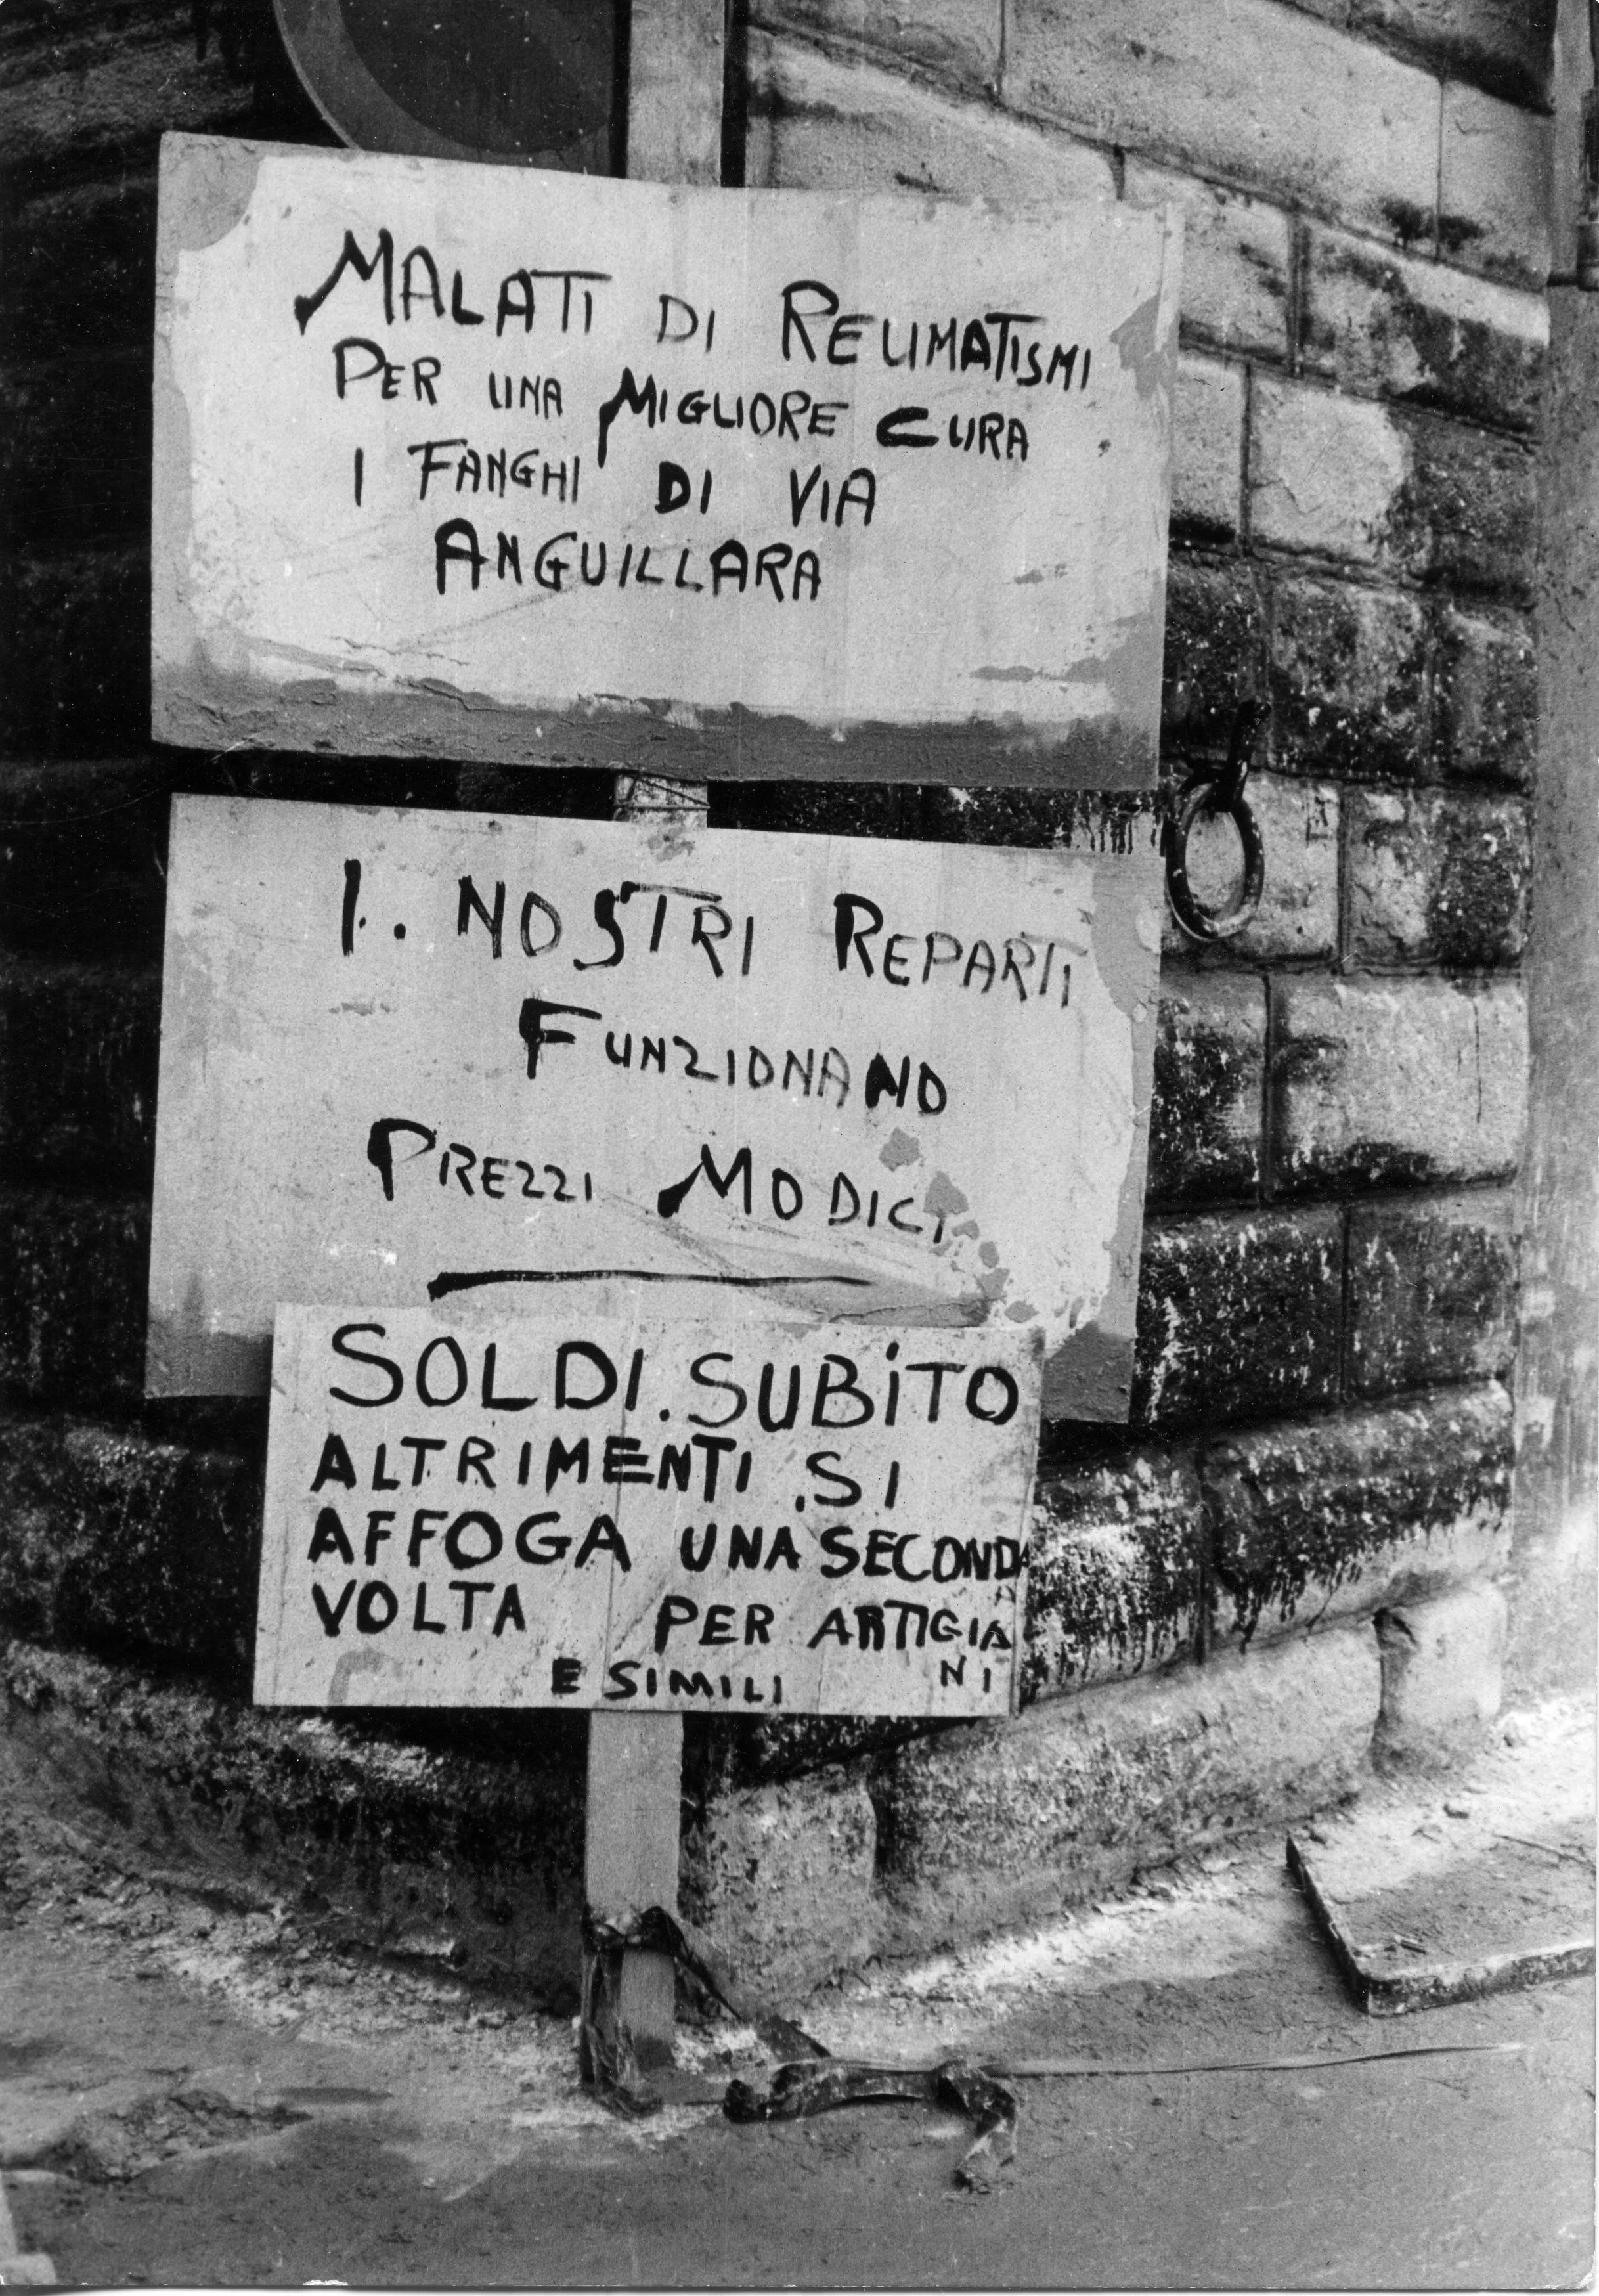 MALATI DI REUMATISMI
PER UNA MIGLIORE CURA
I FANGHI DI VIA
ANGUILLARA
I. NOSTRI REPARTI
FUNZIONANO
PREZZI MODICI
SOLDI. SUBiTO
ALTRIMENTI .SI
AFFOGA UNA SECONDA
VOLTA PER ARTIGIA
E SIMILI NI